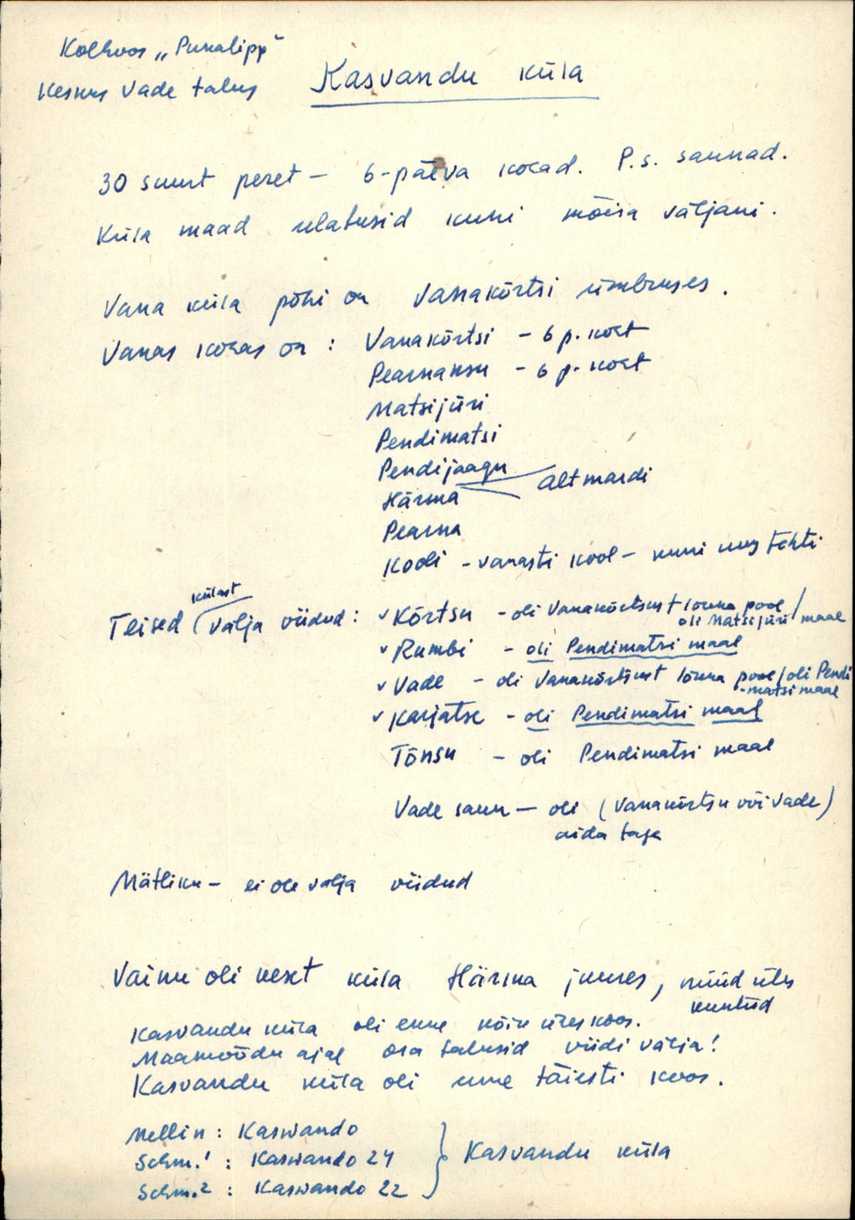 Kolhoos „Punalipp"
Keskus Vade talus
Kasvandu küla
30 suurt peret – 6-päeva kohad. P.s. saunad.
Küla maad ulatusid kuni mõisa väljani.
Vana küla põhi on Vanakõrtsi ümbruses.
Vanas kohas on: Vanakõrtsi – 6 p. koht
Pearnansu – 6 p. koht
Matsijüri
Pendimatsi
Pendijaagu
Härma
Altmardi
Pearna
Kooli – vanasti kool – kuni uus tehti
Teised külast välja viidud: ✓ Kõrtsu – oli Vanakõrtsust lõuna pool / oli Matsijüri maal
✓ Rumbi – oli Pendimatsi maal
✓ Vade – oli Vanakõrtsust lõuna pool / oli Pendi-
matsi maal
✓ Karjatse – oli Pendimatsi maal
Tõnsu – oli Pendimatsi maal
Vade saun – oli (Vanakõrtsu või Vade)
aida taga
Mätliku – ei ole välja viidud
Vainu oli keset küla Härma juures, nüüd üles
küntud
Kasvandu küla oli enne kõik üles koos.
Maamõõdu ajal osa talusid viidi välja!
Kasvandu küla oli enne täiesti koos.
Mellin: Kaswando
Schm.¹: Kaswando 24
Schm.²: Kaswando 22
} Kasvandu küla